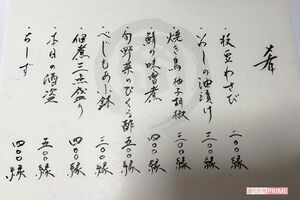 肴
枝豆わさび 二〇〇縁
・いわしの油漬け 三〇〇縁
・焼き鳥柚子胡椒 三〇〇縁
・鯖の味噌煮 四〇〇縁
・旬野菜のピクルス酢
・べじもあ小鉢 二〇〇縁
・佃煮三点盛り 三〇〇縁
・本日の酒盗 五〇〇縁
・ちーず 四〇〇縁
週刊女性PRIME